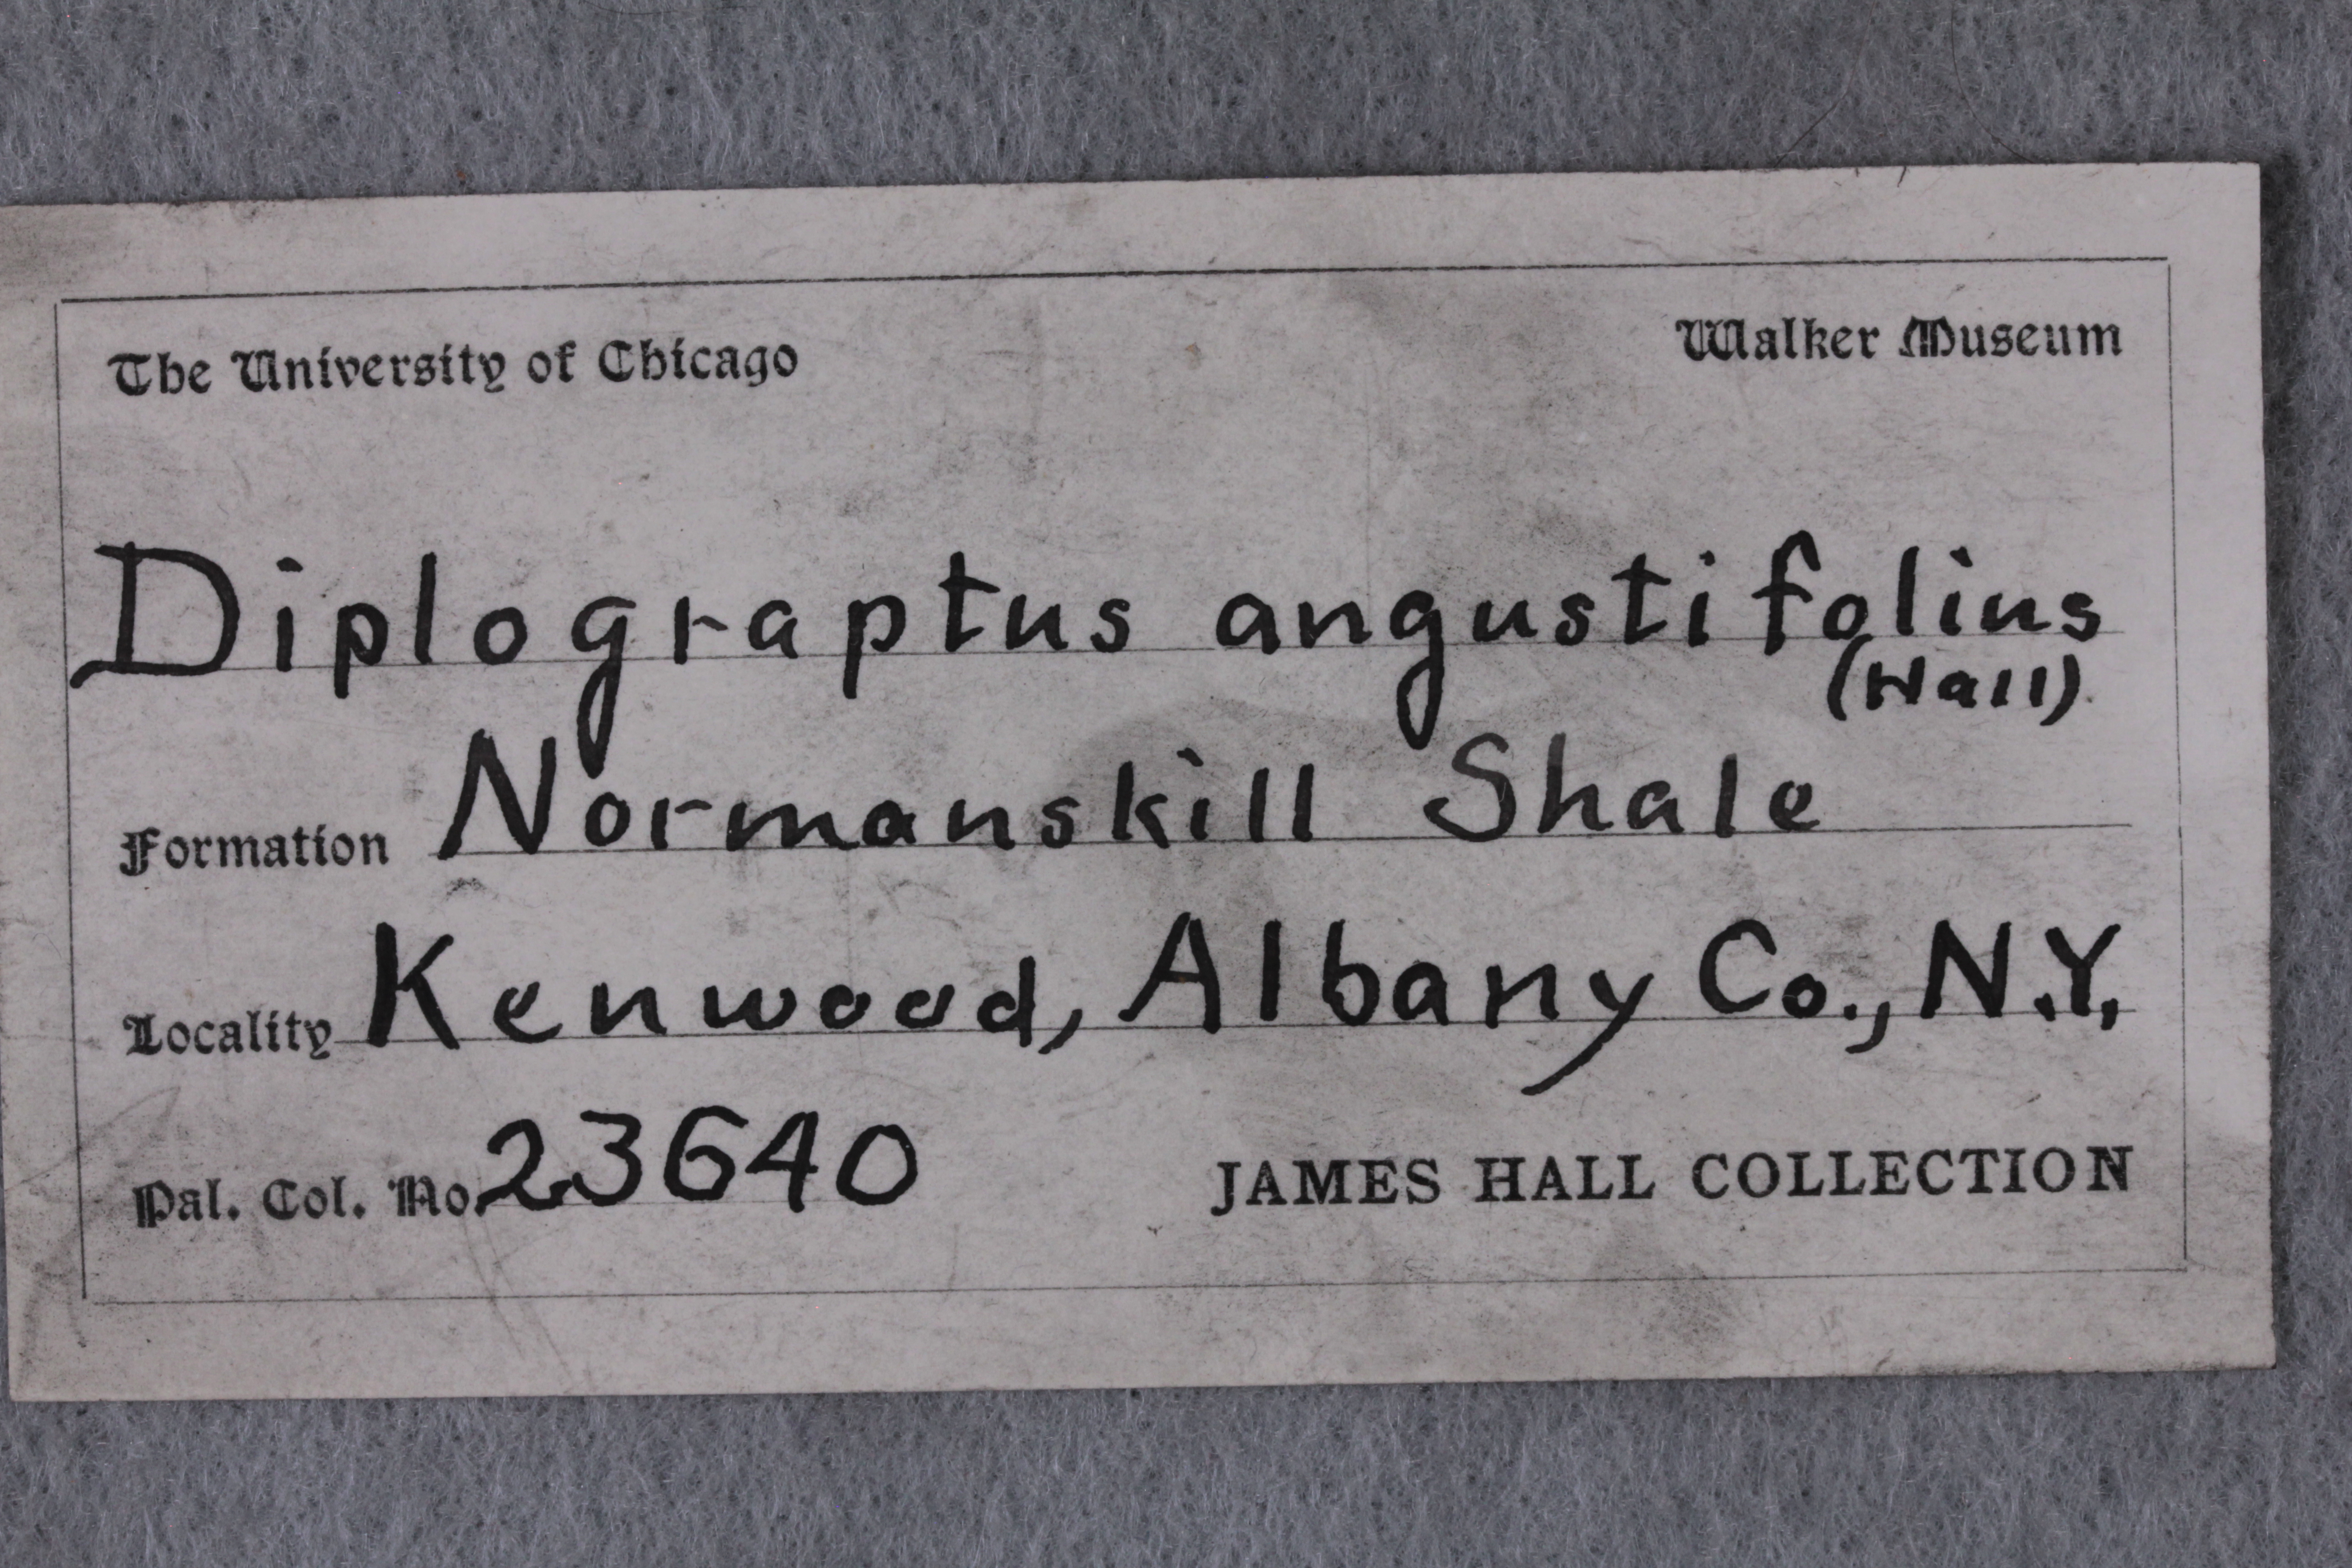 The University of Chicago Walker Museum
Diplograptus angustifolius
(Hall)
Formation Normanskill Shale
Locality Kenwood, Albany Co., N.Y.
Pal. Col. No. 23640 JAMES HALL COLLECTION